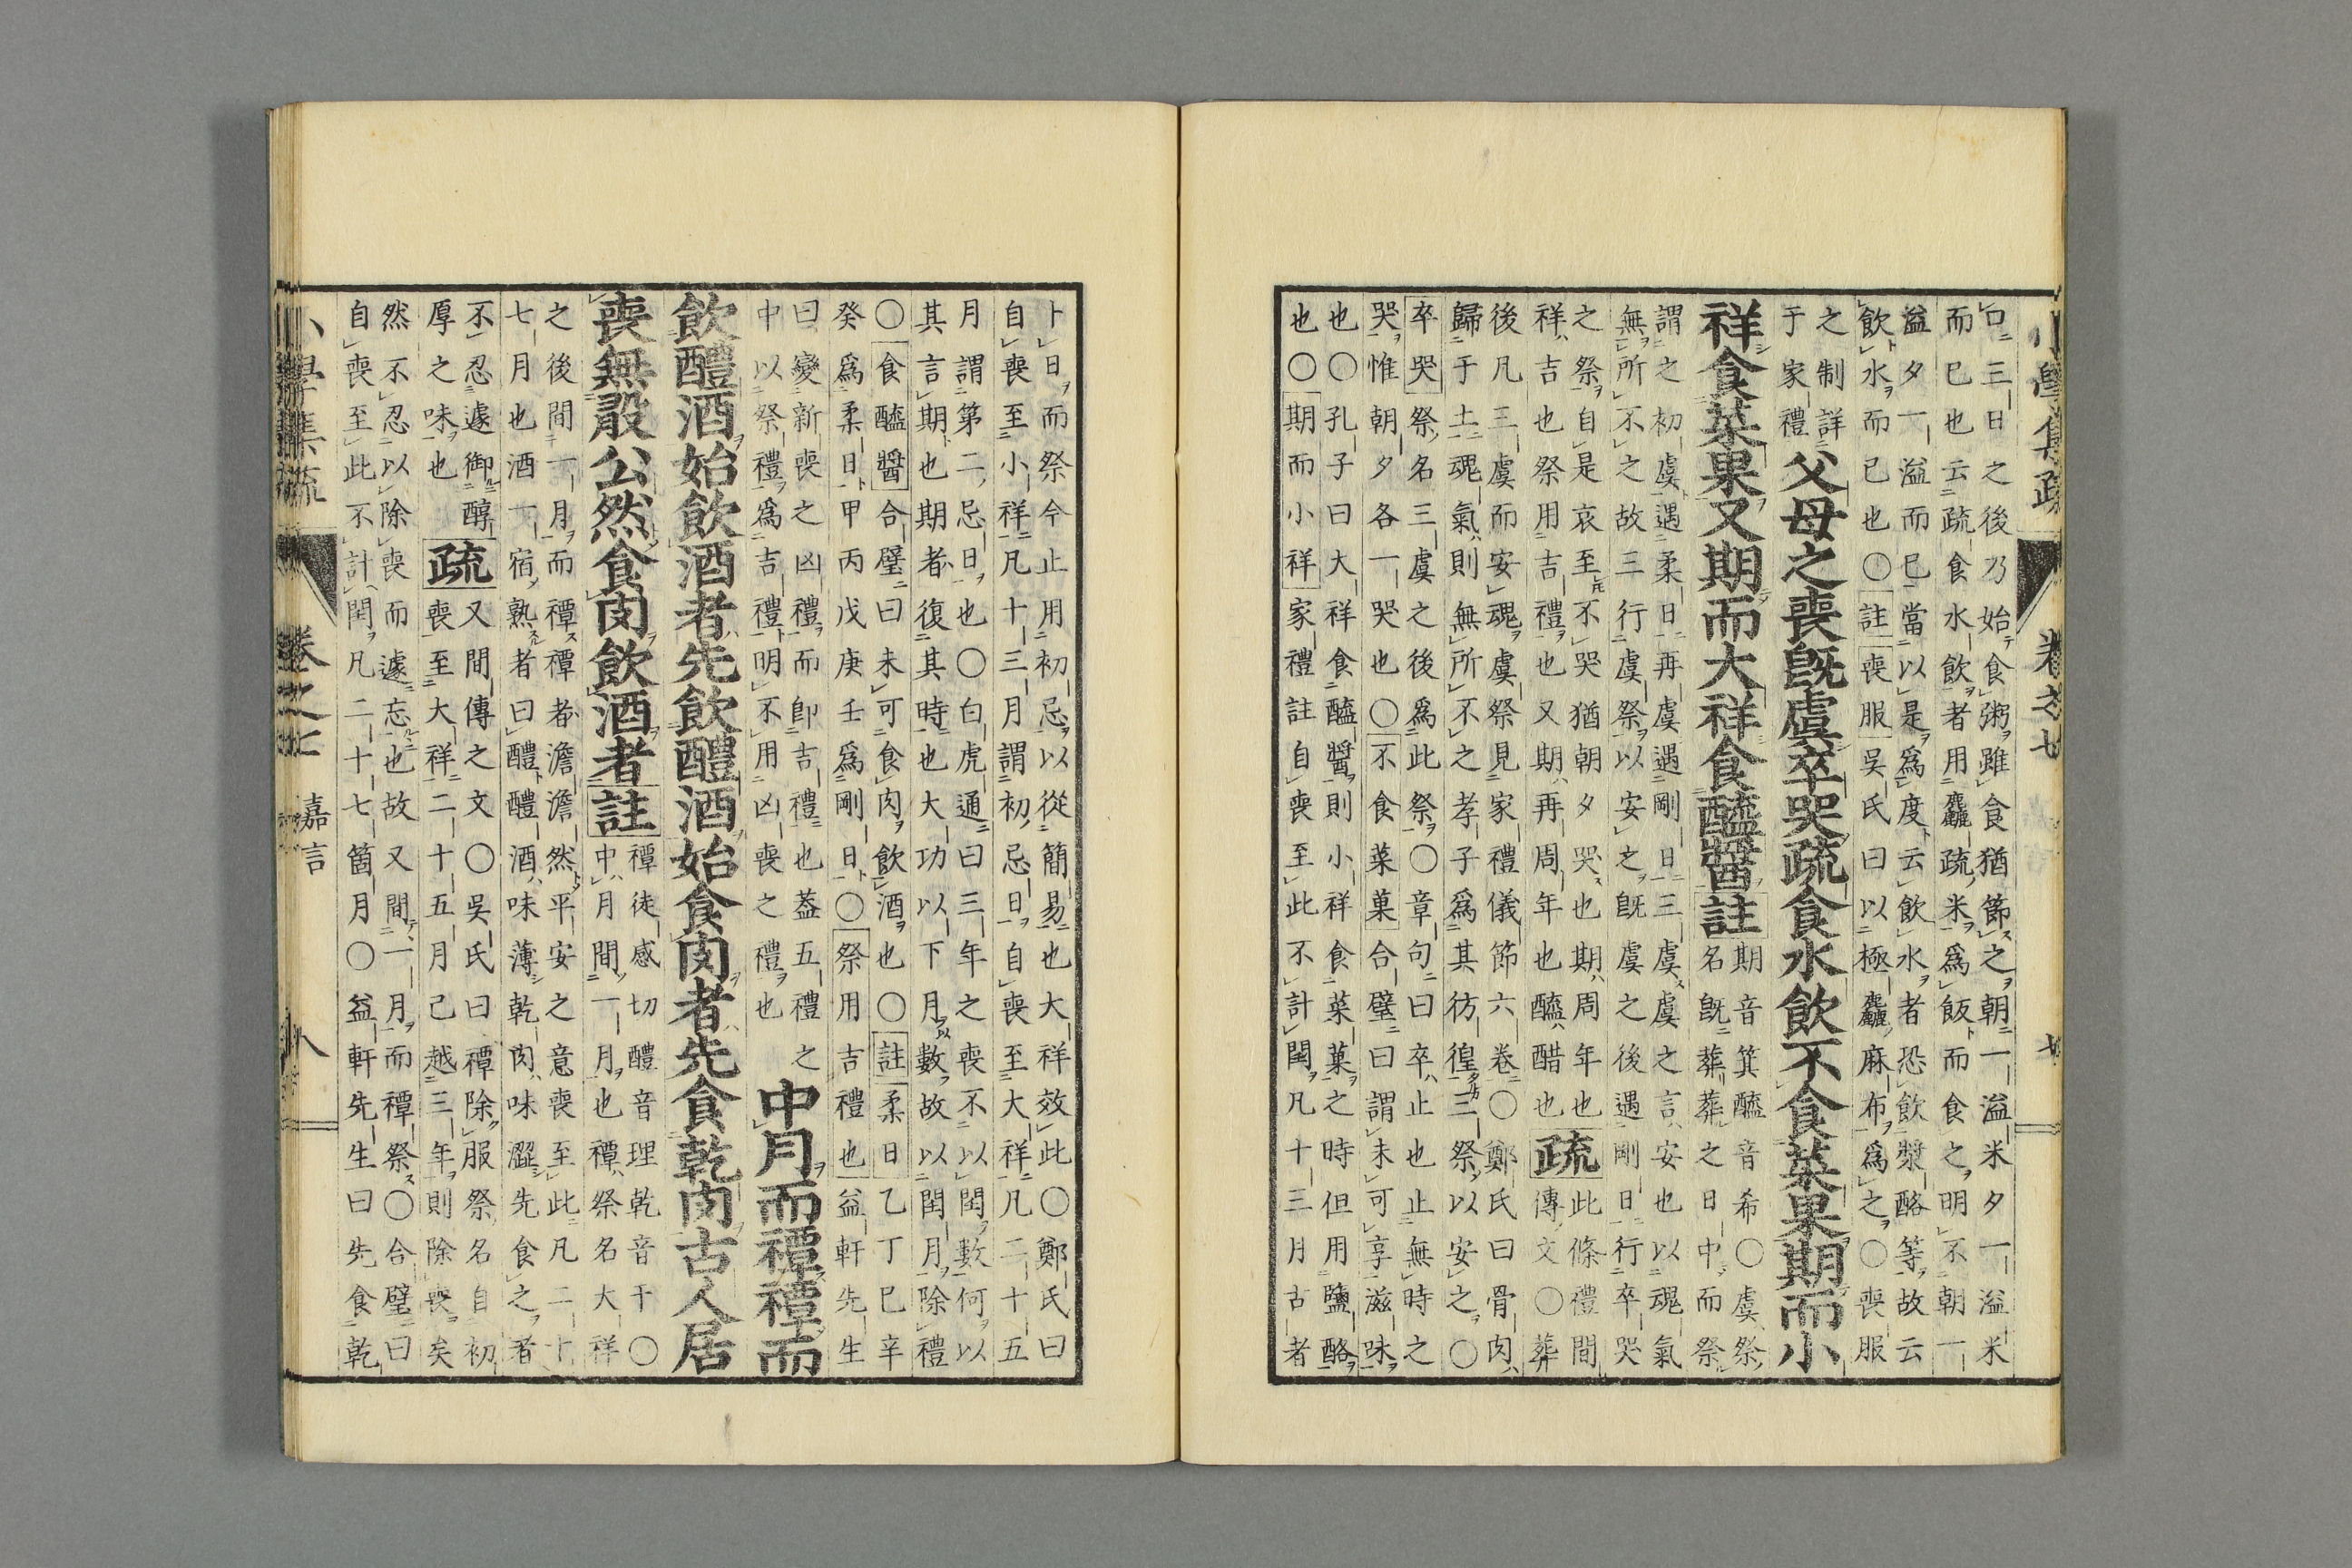 小學集疏 卷之七 七
口三日之後乃始食粥雖食猶節之朝一溢米夕一溢米
而已也云疏食水飲者用麤疏米爲飯而食之明不朝一
溢夕一溢而已當以是爲度云飲水者恐飲漿酪等故云
飲水而已也〇註喪服吳氏曰以極麤麻布爲之〇喪服
之制詳
于家禮
父母之喪旣虞卒哭疏食水飲不食菜果期而小
祥食菜果又期而大祥食醯醬註
期音箕醯音希〇虞祭
名旣葬葬之日中而祭
謂之初虞遇柔日再虞遇剛日三虞虞之言安也以魂氣
無所不之故三行虞祭以安之旣虞之後遇剛日行卒哭
之祭自是哀至不哭猶朝夕哭也期周年也
祥吉也祭用吉禮也又期再周年也醯醋也
疏
此條禮間
傳文〇葬
後凡三虞而安魂虞祭見家禮儀節六卷〇鄭氏曰骨肉
歸于土魂氣則無所不之孝子爲其彷徨三祭以安之〇
卒哭祭名三虞之後爲此祭〇章句曰卒止也止無時之
哭惟朝夕各一哭也〇不食菜菓合璧曰謂未可享滋味
也〇孔子曰大祥食醯醬則小祥食菜菓之時但用鹽酪
也〇期而小祥家禮註自喪至此不計閏凡十三月古者
卜日而祭今止用初忌以從簡易也大祥效此〇鄭氏曰
自喪至小祥凡十三月謂初忌日自喪至大祥凡二十五
月謂第二忌日也〇白虎通曰三年之喪不以閏數何以
其言期也期者復其時也大功以下月數故以閏月除禮
〇食醯醬合璧曰未可食肉飲酒也〇註柔日乙丁巳辛
癸爲柔日甲丙戊庚壬爲剛日〇祭用吉禮也益軒先生
曰變新喪之凶禮而卽吉禮也葢五禮之
中以祭禮爲吉禮明不用凶喪之禮也
中月而禫禫而
飲醴酒始飲酒者先飲醴酒始食肉者先食乾肉古人居
喪無敢公然食肉飲酒者註
禫徒感切醴音理乾音干〇
中月間一月也禫祭名大祥
之後間一月而禫禫者澹澹然平安之意喪至此凡二十
七月也酒一宿熟者曰醴醴酒味薄乾肉味澀先食之者
不忍遽御醇
厚之味也
疏
又間傳之文〇吳氏曰禫除服祭名自初
喪至大祥二十五月已越三年則除喪矣
然不忍以除喪而遽忘也故又間一月而禫祭〇合璧曰
自喪至此不計閏凡二十七箇月〇益軒先生曰先食乾
小學集疏 卷之七 嘉言 八